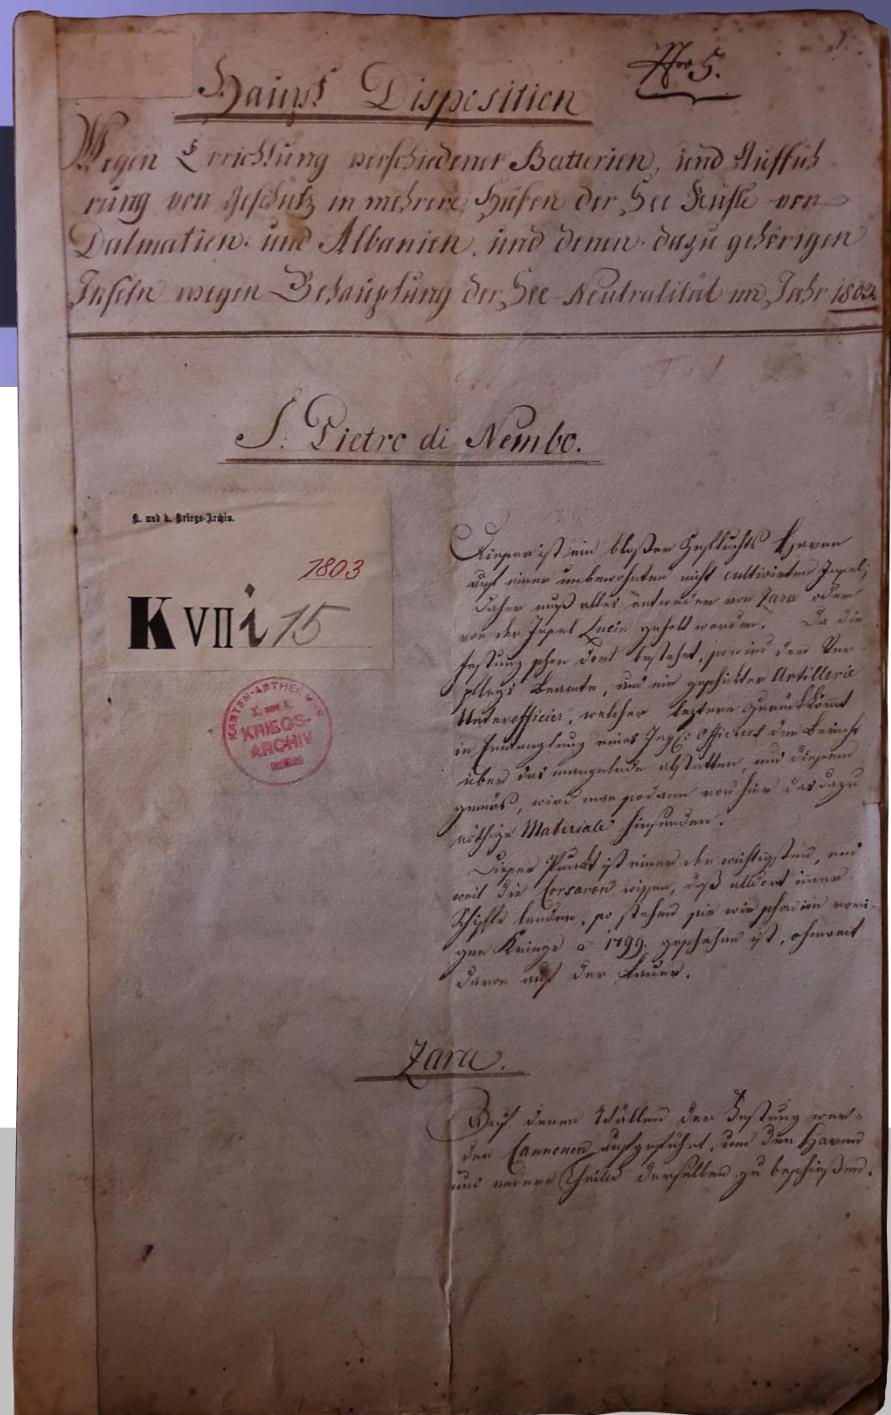 Nro 5.
Haupt Disposition
Wegen Errichtung verschiedener Batterien, und Auffüh
rung von Geschütz in mehrere Häfen der See Küste von
Dalmatien und Albanien, und denen dazu gehörigen
Inseln wegen Behauptung der See-Neutralität im Jahr 1803.
S. Pietro di Nembo.
K. und k. Kriegs-Archiv.
1803
K VII i 15
KARTEN-ABTHEILUNG
K. und k.
KRIEGS-
ARCHIV
Dieses ist ein bloßer Haven
auf einer unbewohnten nicht cultivirten Insel,
daher muß alles entweder von Zara oder
von der Insel Lucin geholt werden. Da die
Festung schon dort besteht, so wird der Ver-
pflegs Beamte, und ein geschickter Artillerie
Unterofficier, welcher letztere zurückkömmt
in Ermanglung eines Officiers den Bericht
über das mangelnde abstatten und diesem
gemäs, wird man sodann von hier das dazu
nöthige Materiale hinsenden.
Dieser Punkt ist einer der wichtigsten, und
weil die Corsaren wissen, daß alldort immer
Schiffe landen, so stehen sie wie schon im vori-
gen Kriege a 1799. geschehen ist, ohnweit
davon auf der Lauer.
Zara.
Auf denen Wällen der Festung wer-
den Cannonen aufgeführt, um den Haven
und andere Theile derselben zu beschießen.